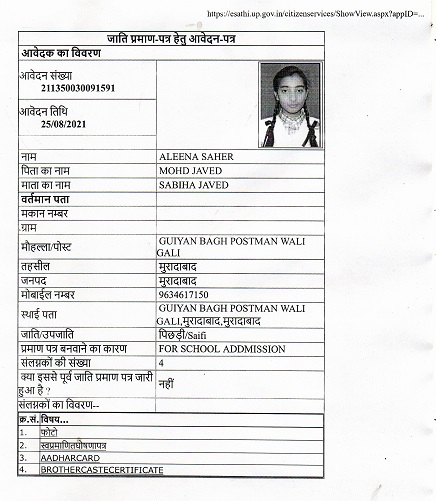 https://esathi.up.gov.in/citizenservices/ShowView.aspx?appID=...
जाति प्रमाण-पत्र हेतु आवेदन-पत्र
आवेदक का विवरण
आवेदन संख्या
211350030091591
आवेदन तिथि
25/08/2021
नाम ALEENA SAHER
पिता का नाम MOHD JAVED
माता का नाम SABIHA JAVED
वर्तमान पता
मकान नम्बर
ग्राम
मौहल्ला/पोस्ट GUIYAN BAGH POSTMAN WALI
GALI
तहसील मुरादाबाद
जनपद मुरादाबाद
मोबाईल नम्बर 9634617150
स्थाई पता GUIYAN BAGH POSTMAN WALI
GALI,मुरादाबाद,मुरादाबाद
जाति/उपजाति पिछड़ी/Saifi
प्रमाण पत्र बनवाने का कारण FOR SCHOOL ADDMISSION
संलग्नकों की संख्या 4
क्या इससे पूर्व जाति प्रमाण पत्र जारी
हुआ है ? नहीं
संलग्नकों का विवरण--
क्र.सं. विषय...
1. फोटो
2. स्वप्रमाणितघोषणापत्र
3. AADHARCARD
4. BROTHERCASTECERTIFICATE